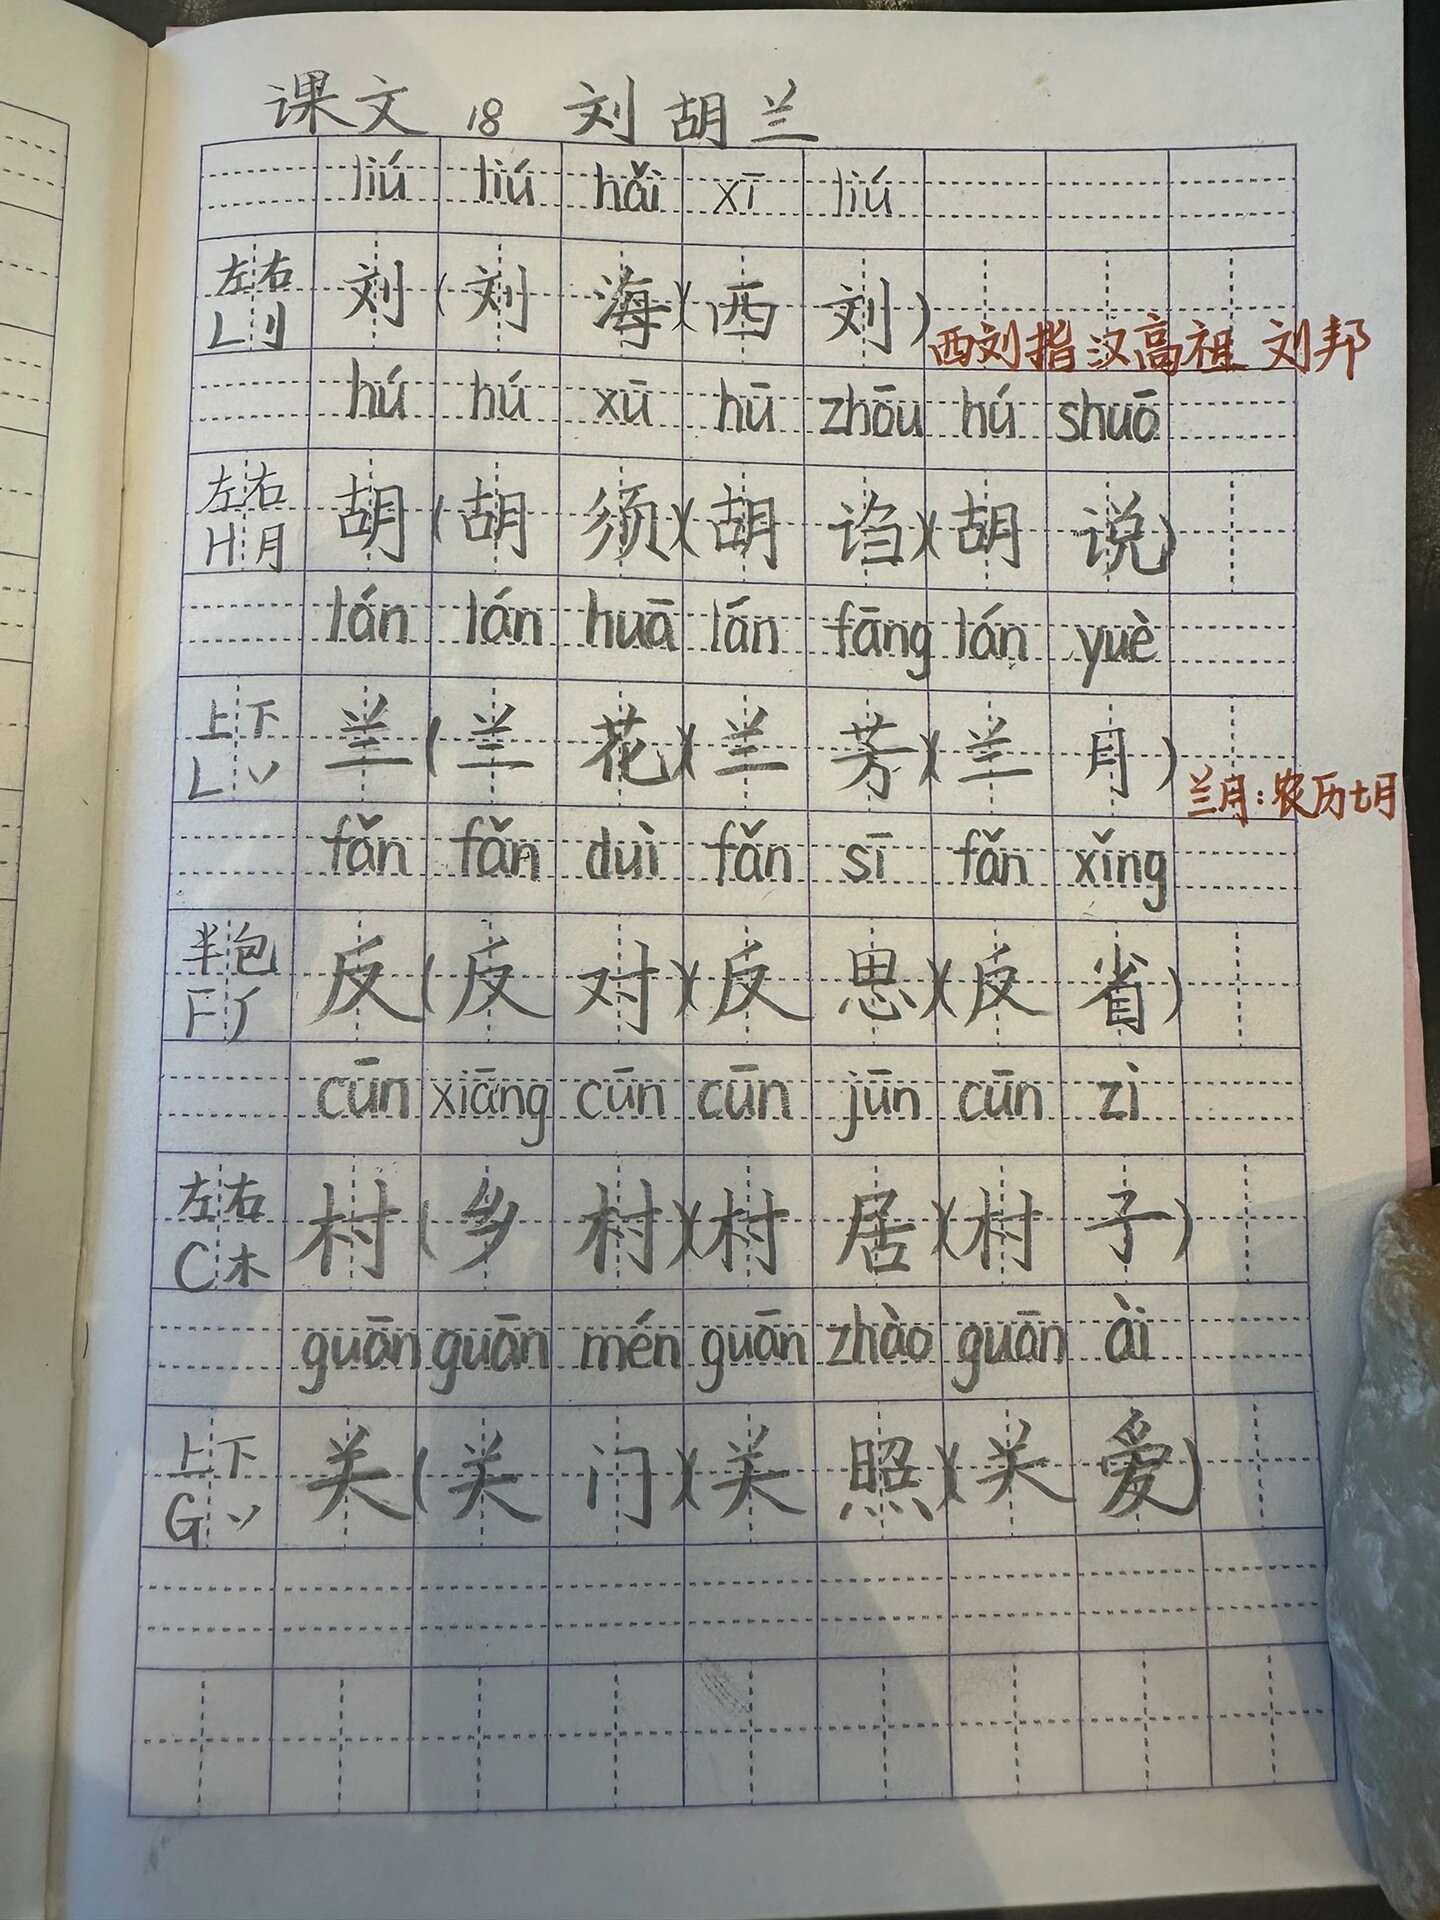 课文 18 刘胡兰
liú liú hǎi xī liú
左右 刘(刘海)(西刘)
L刂 西刘指汉高祖 刘邦
hú hú xū hū zhōu hú shuō
左右 胡(胡须)(胡诌)(胡说)
H月
lán lán huā lán fāng lán yuè
上下 兰(兰花)(兰芳)(兰月)
L丷 兰月:农历七月
fǎn fǎn duì fǎn sī fǎn xǐng
半包 反(反对)(反思)(反省)
F厂
cūn xiāng cūn cūn jūn cūn zi
左右 村(乡村)(村居)(村子)
C木
guān guān mén guān zhào guān ài
上下 关(关门)(关照)(关爱)
G丷